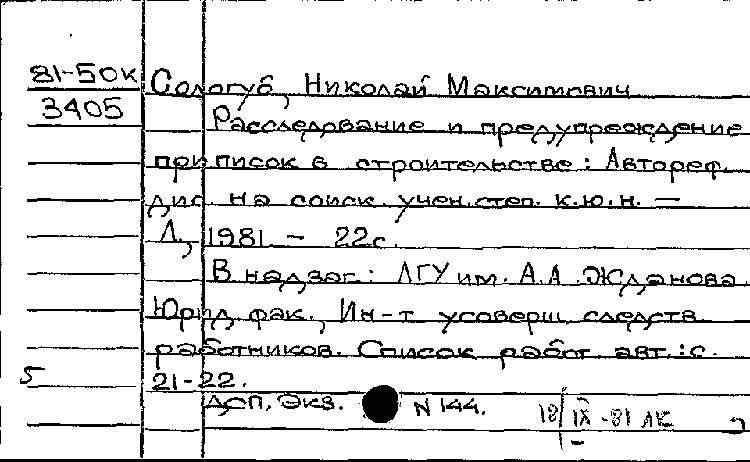 81-50к Сологуб, Николай Максимович
3405 Расследование и предупреждение
приписок в строительстве: Автореф.
дис. на соиск. учен. степ. к.ю.н. —
Л., 1981 - 22с.
В надзаг.: ЛГУ им. А.А. Жданова.
Юрид. фак., Ин-т усоверш. следств.
работников. Список работ авт.: с.
5 21-22.
ДСП, Экз. N 144.
18/IX-81